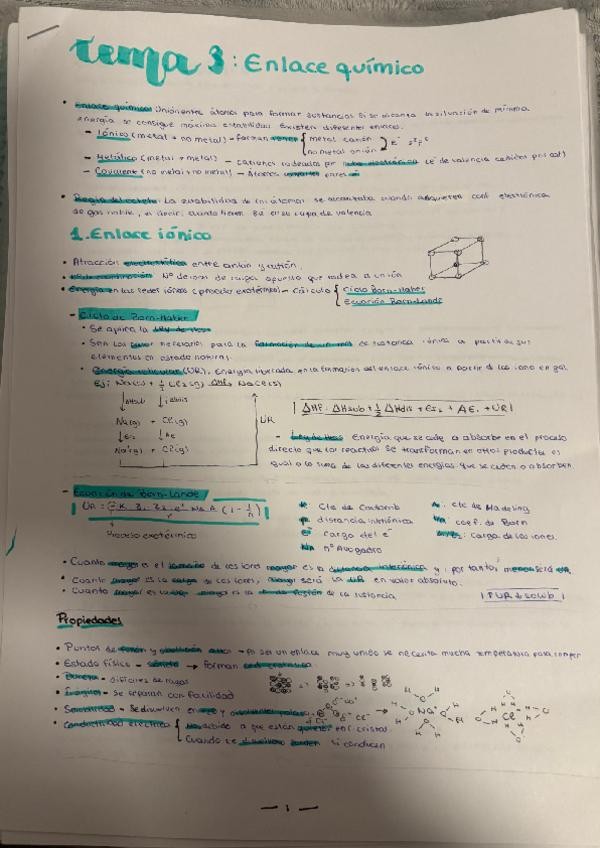 tema 3: Enlace químico
• Enlace químico: Unión entre átomos para formar sustancias. Si se alcanza la situación de mínima
energía se consigue máxima estabilidad. Existen diferentes enlaces:
- Iónico (metal + no metal) - forman { metal catión
no metal anión
- Metálico (metal + metal) - cationes rodeados por (e⁻ de valencia cedidos por cat)
- Covalente (no metal + no metal) - Átomos comparten pares e⁻
• Regla del octeto: La estabilidad de los átomos se alcanzaba cuando adquieren conf. electrónica
de gas noble, es decir, cuando tienen 8e⁻ en su capa de valencia
1. Enlace iónico
• Atracción electrostática entre anión y catión.
• Nº de iones de carga opuesta que rodea a un ión
• Energía en las redes iónicas (proceso exotérmico) - Cálculo { Ciclo Born-Haber
Ecuación Born-Landé
- Ciclo de Born-Haber
• Se aplica la Ley de Hess
• Son los necesarios para la formación de un mol de sustancia iónica a partir de sus
elementos en estado natural.
• Energía reticular (UR). Energía liberada en la formación del enlace iónico a partir de los iones en gas
Ej: Na(s) + ½ Cl₂(g) ΔHf NaCl(s)
↓ΔHsub ↓½ΔHdis
Na(g) + Cl(g)
UR
↓EI ↓AE
Na⁺(g) + Cl⁻(g)
ΔHf = ΔHsub + ½ ΔHdis + EI + AE + UR
- Ley de Hess Energía que se cede o absorbe en el proceso
directo que los reactivos se transforman en otros productos es
igual a la suma de las diferentes energías que se ceden o absorben.
- Ecuación de Born-Landé
UR = (1 - 1/n)
Proceso exotérmico
K: Cte de Coulomb
distancia interiónica
e: carga del e⁻
NA: nº Avogadro
A: cte de Madelung
n: coef. de Born
carga de los iones.
• Cuanto mayor es el tamaño de los iones mayor es la distancia interiónica y, por tanto, menor será UR
• Cuanto mayor es la carga de los iones, mayor será la UR en valor absoluto.
• Cuanto mayor es la UR mayor es la t. de fusión de la sustancia
Propiedades
• Puntos de fusión y ebullición altos - Al ser un enlace muy unido se necesita mucha temperatura para romper
• Estado físico - sólido → forman
• Dureza - difíciles de rayar
• Frágiles - Se separan con facilidad
• Solubilidad - Se disuelven en agua y disolventes polares
• Conductividad eléctrica { No debido a que están quietos en el cristal
Cuando se disuelven o funden sí conducen
Na⁺
Cl⁻
- 1 -